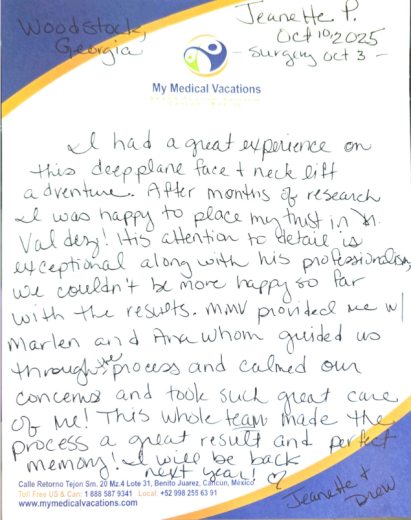 Woodstock,
Georgia
Jeanette P.
Oct 10, 2025
- surgery Oct 3 -
My Medical Vacations
I had a great experience on
this deep plane face + neck lift
adventure. After months of research
I was happy to place my trust in Dr.
Valdez! His attention to detail is
exceptional along with his professionalism,
we couldn't be more happy so far
with the results. MMV provided me w/
Marlen and Ana whom guided us
through the process and calmed our
concerns and took such great care
of me! This whole team made the
process a great result and perfect
memory! I will be back
next year! ♡
Jeanette +
Drew
Calle Retorno Tejon Sm. 20 Mz.4 Lote 31, Benito Juarez, Cancun, Mexico
Toll Free US & Can: 1 888 587 9341 Local: +52 998 255 63 91
www.mymedicalvacations.com